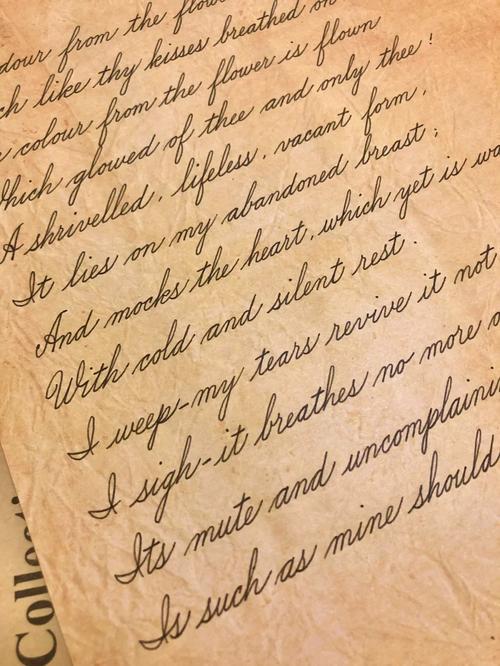 from the
like thy kisses breathed on
colour from the flower is flown
Which glowed of thee and only thee!
A shrivelled, lifeless, vacant form,
It lies on my abandoned breast;
And mocks the heart, which yet is
With cold and silent rest.
I weep-my tears revive it not
I sigh-it breathes no more
Its mute and
Is such as mine should